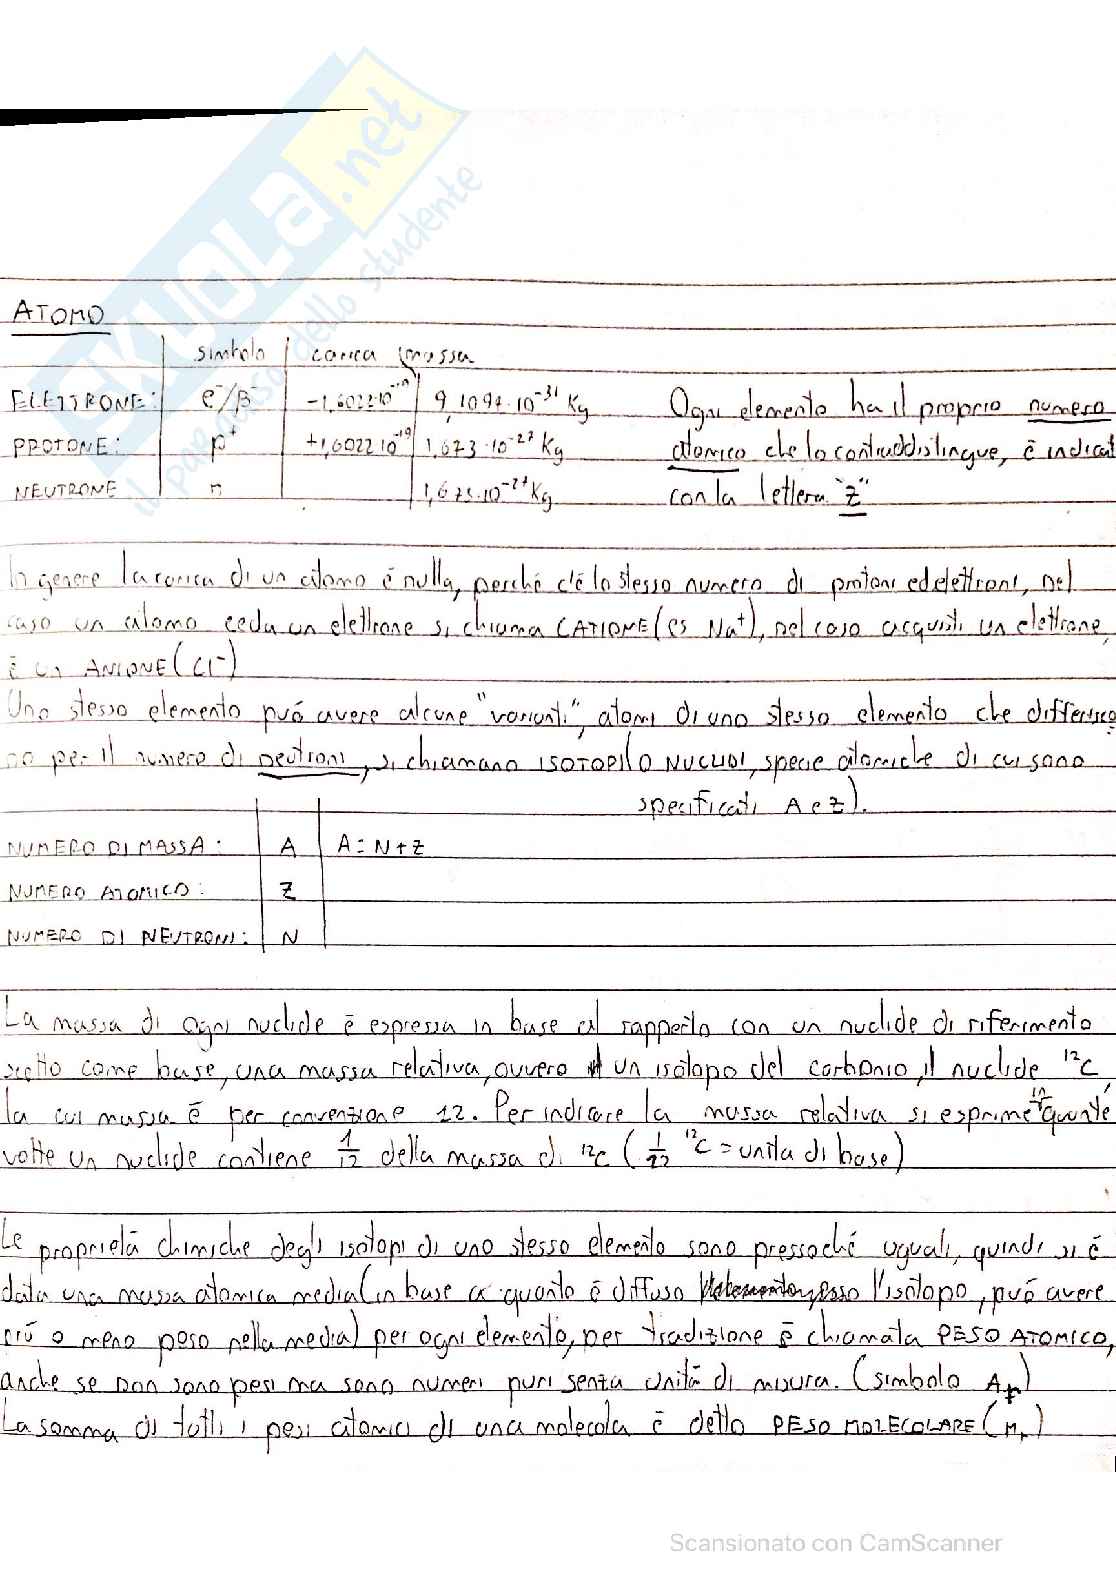 SKUOLA.net
il paradiso dello studente
ATOMO
simbolo carica massa
ELETTRONE: e⁻/β⁻ -1,6022·10⁻¹⁹ 9,1094·10⁻³¹ Kg
PROTONE: p⁺ +1,6022·10⁻¹⁹ 1,673·10⁻²⁷ Kg
NEUTRONE n 1,675·10⁻²⁷ Kg
Ogni elemento ha il proprio numero
atomico che lo contraddistingue, è indicat
con la lettera "Z"
In genere la carica di un atomo è nulla, perché c'è lo stesso numero di protoni ed elettroni, nel
caso un atomo ceda un elettrone si chiama CATIONE (es Na⁺), nel caso acquisti un elettrone,
è un ANIONE (Cl⁻)
Uno stesso elemento può avere alcune "varianti", atomi di uno stesso elemento che differisco
no per il numero di neutroni, si chiamano ISOTOPI (O NUCLIDI, specie atomiche di cui sono
specificati A e Z).
NUMERO DI MASSA: A A = N+Z
NUMERO ATOMICO: Z
NUMERO DI NEUTRONI: N
La massa di ogni nuclide è espressa in base al rapporto con un nuclide di riferimento
scelto come base, una massa relativa, ovvero un isotopo del carbonio, il nuclide ¹²C,
la cui massa è per convenzione 12. Per indicare la massa relativa si esprime in quante
volte un nuclide contiene 1/12 della massa di ¹²C (1/12 ¹²C = unità di base)
Le proprietà chimiche degli isotopi di uno stesso elemento sono pressoché uguali, quindi si è
data una massa atomica media (in base a quanto è diffuso l'isotopo, può avere
più o meno peso nella media) per ogni elemento, per tradizione è chiamata PESO ATOMICO,
anche se non sono pesi ma sono numeri puri senza unità di misura. (simbolo Ar)
La somma di tutti i pesi atomici di una molecola è detto PESO MOLECOLARE (Mr)
Scansionato con CamScanner